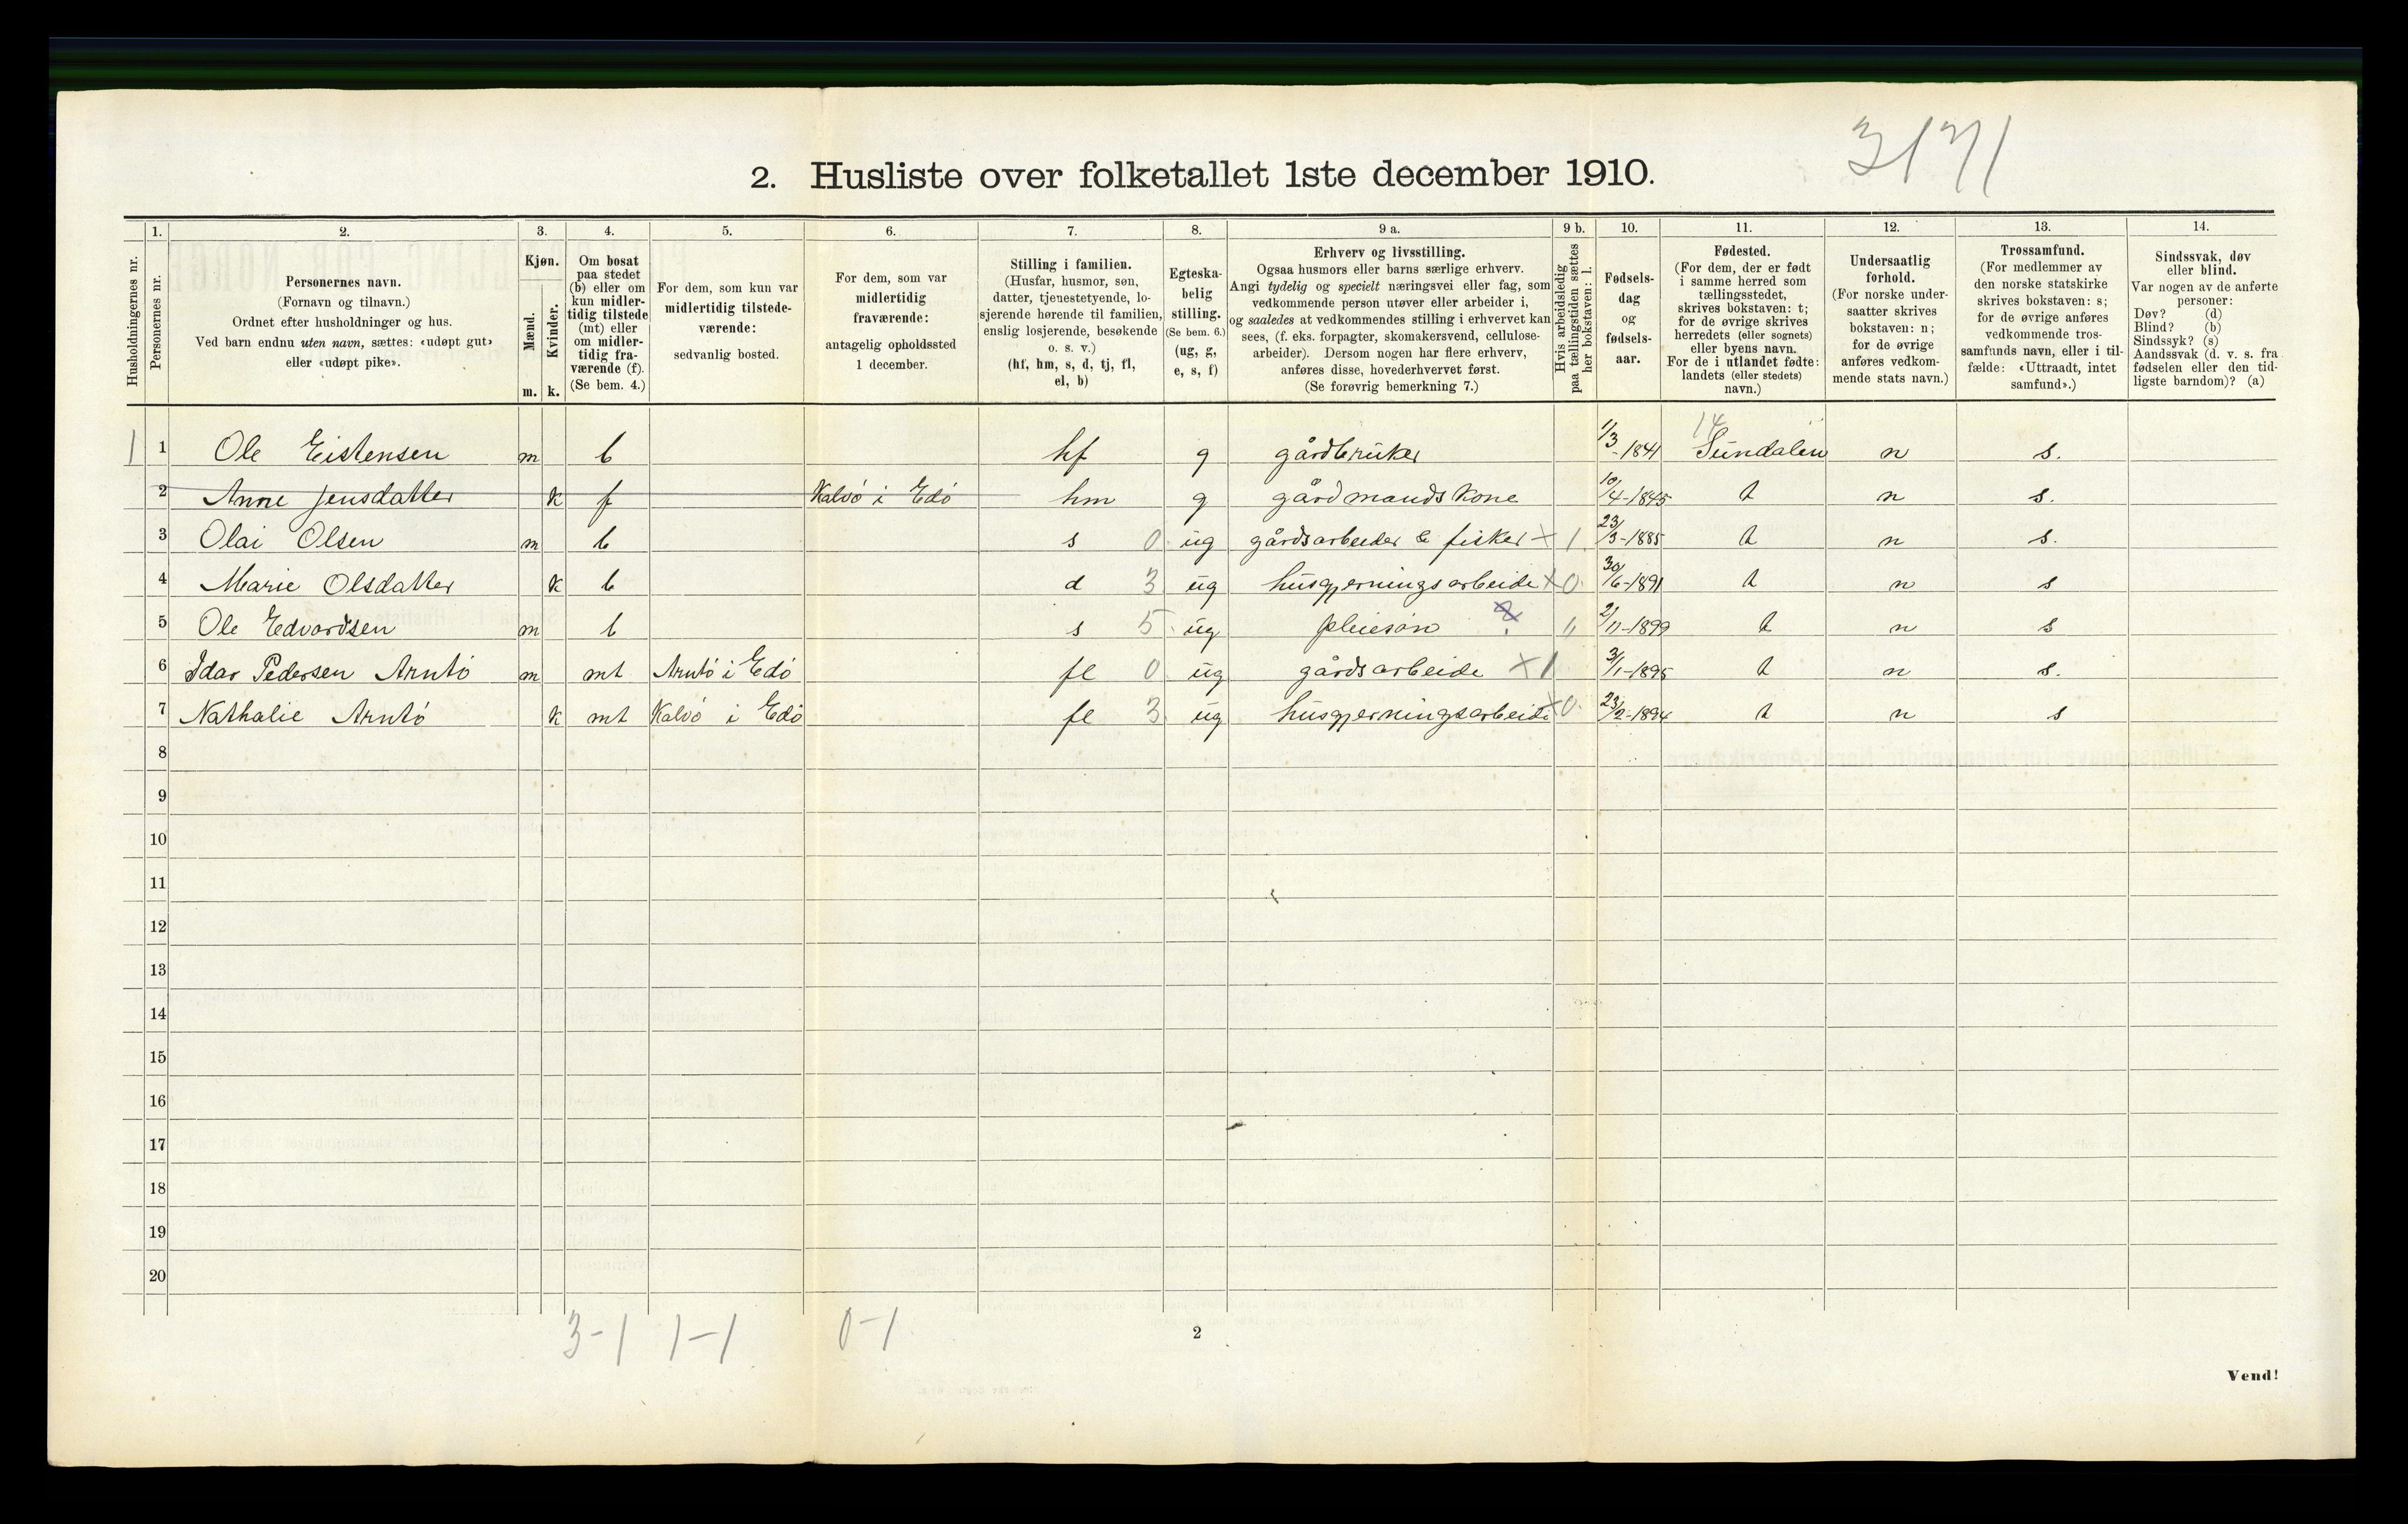 3171
2. Husliste over folketallet 1ste december 1910.
Husholdningernes nr.
1.
Personernes nr.
2.
Personernes navn.
(Fornavn og tilnavn.)
Ordnet efter husholdninger og hus.
Ved barn endnu uten navn, sættes: «udøpt gut»
eller «udøpt pike».
3.
Kjøn.
Mænd.
Kvinder.
m. k.
4.
Om bosat
paa stedet
(b) eller om
kun midler-
tidig tilstede
(mt) eller
om midler-
tidig fra-
værende (f).
(Se bem. 4.)
5.
For dem, som kun var
midlertidig tilstede-
værende:
sedvanlig bosted.
6.
For dem, som var
midlertidig
fraværende:
antagelig opholdssted
1 december.
7.
Stilling i familien.
(Husfar, husmor, søn,
datter, tjenestetyende, lo-
sjerende hørende til familien,
enslig losjerende, besøkende
o. s. v.)
(hf, hm, s, d, tj, fl,
el, b)
8.
Egteska-
belig
stilling.
(Se bem. 6.)
(ug, g,
e, s, f)
9 a.
Erhverv og livsstilling.
Ogsaa husmors eller barns særlige erhverv.
Angi tydelig og specielt næringsvei eller fag, som
vedkommende person utøver eller arbeider i,
og saaledes at vedkommendes stilling i erhvervet kan
sees, (f. eks. forpagter, skomakersvend, cellulose-
arbeider). Dersom nogen har flere erhverv,
anføres disse, hovederhvervet først.
(Se forøvrig bemerkning 7.)
9 b.
Hvis arbeidsledig
paa tællingstiden sættes
her bokstaven: l.
10.
Fødsels-
dag
og
fødsels-
aar.
11.
Fødested.
(For dem, der er født
i samme herred som
tællingsstedet,
skrives bokstaven: t;
for de øvrige skrives
herredets (eller sognets)
eller byens navn.
For de i utlandet fødte:
landets (eller stedets)
navn.)
12.
Undersaatlig
forhold.
(For norske under-
saatter skrives
bokstaven: n;
for de øvrige
anføres vedkom-
mende stats navn.)
13.
Trossamfund.
(For medlemmer av
den norske statskirke
skrives bokstaven: s;
for de øvrige anføres
vedkommende tros-
samfunds navn, eller i til-
fælde: «Uttraadt, intet
samfund».)
14.
Sindssvak, døv
eller blind.
Var nogen av de anførte
personer:
Døv? (d)
Blind? (b)
Sindssyk? (s)
Aandssvak (d. v. s. fra
fødselen eller den tid-
ligste barndom)? (a)
14
1 1 Ole Eistensen m b hf g gårdbruker 1/3-1841 Sundalen n s.
2 Anne Jensdatter k f Kalvö i Edö hm g gårdmandskone 10/4-1845 t n s.
3 Olai Olsen m b s 0 ug gårdsarbeider & fisker × 1 23/3-1885 t n s.
4 Marie Olsdatter k b d 3 ug husgjerningsarbeide × 0 30/6-1891 t n s
5 Ole Edvardsen m b s 5 ug pleiesön 2/11-1899 t n s
6 Idar Pedersen Arntö m mt Arntö i Edö fl 0 ug gårdsarbeide × 1 3/1-1895 t n s.
7 Nathalie Arntö k mt Kalvö i Edö fl 3 ug husgjerningsarbeide × 0 23/2-1894 t n s
8
9
10
11
12
13
14
15
16
17
18
19
20
3-1 1-1 0-1
2
Vend!